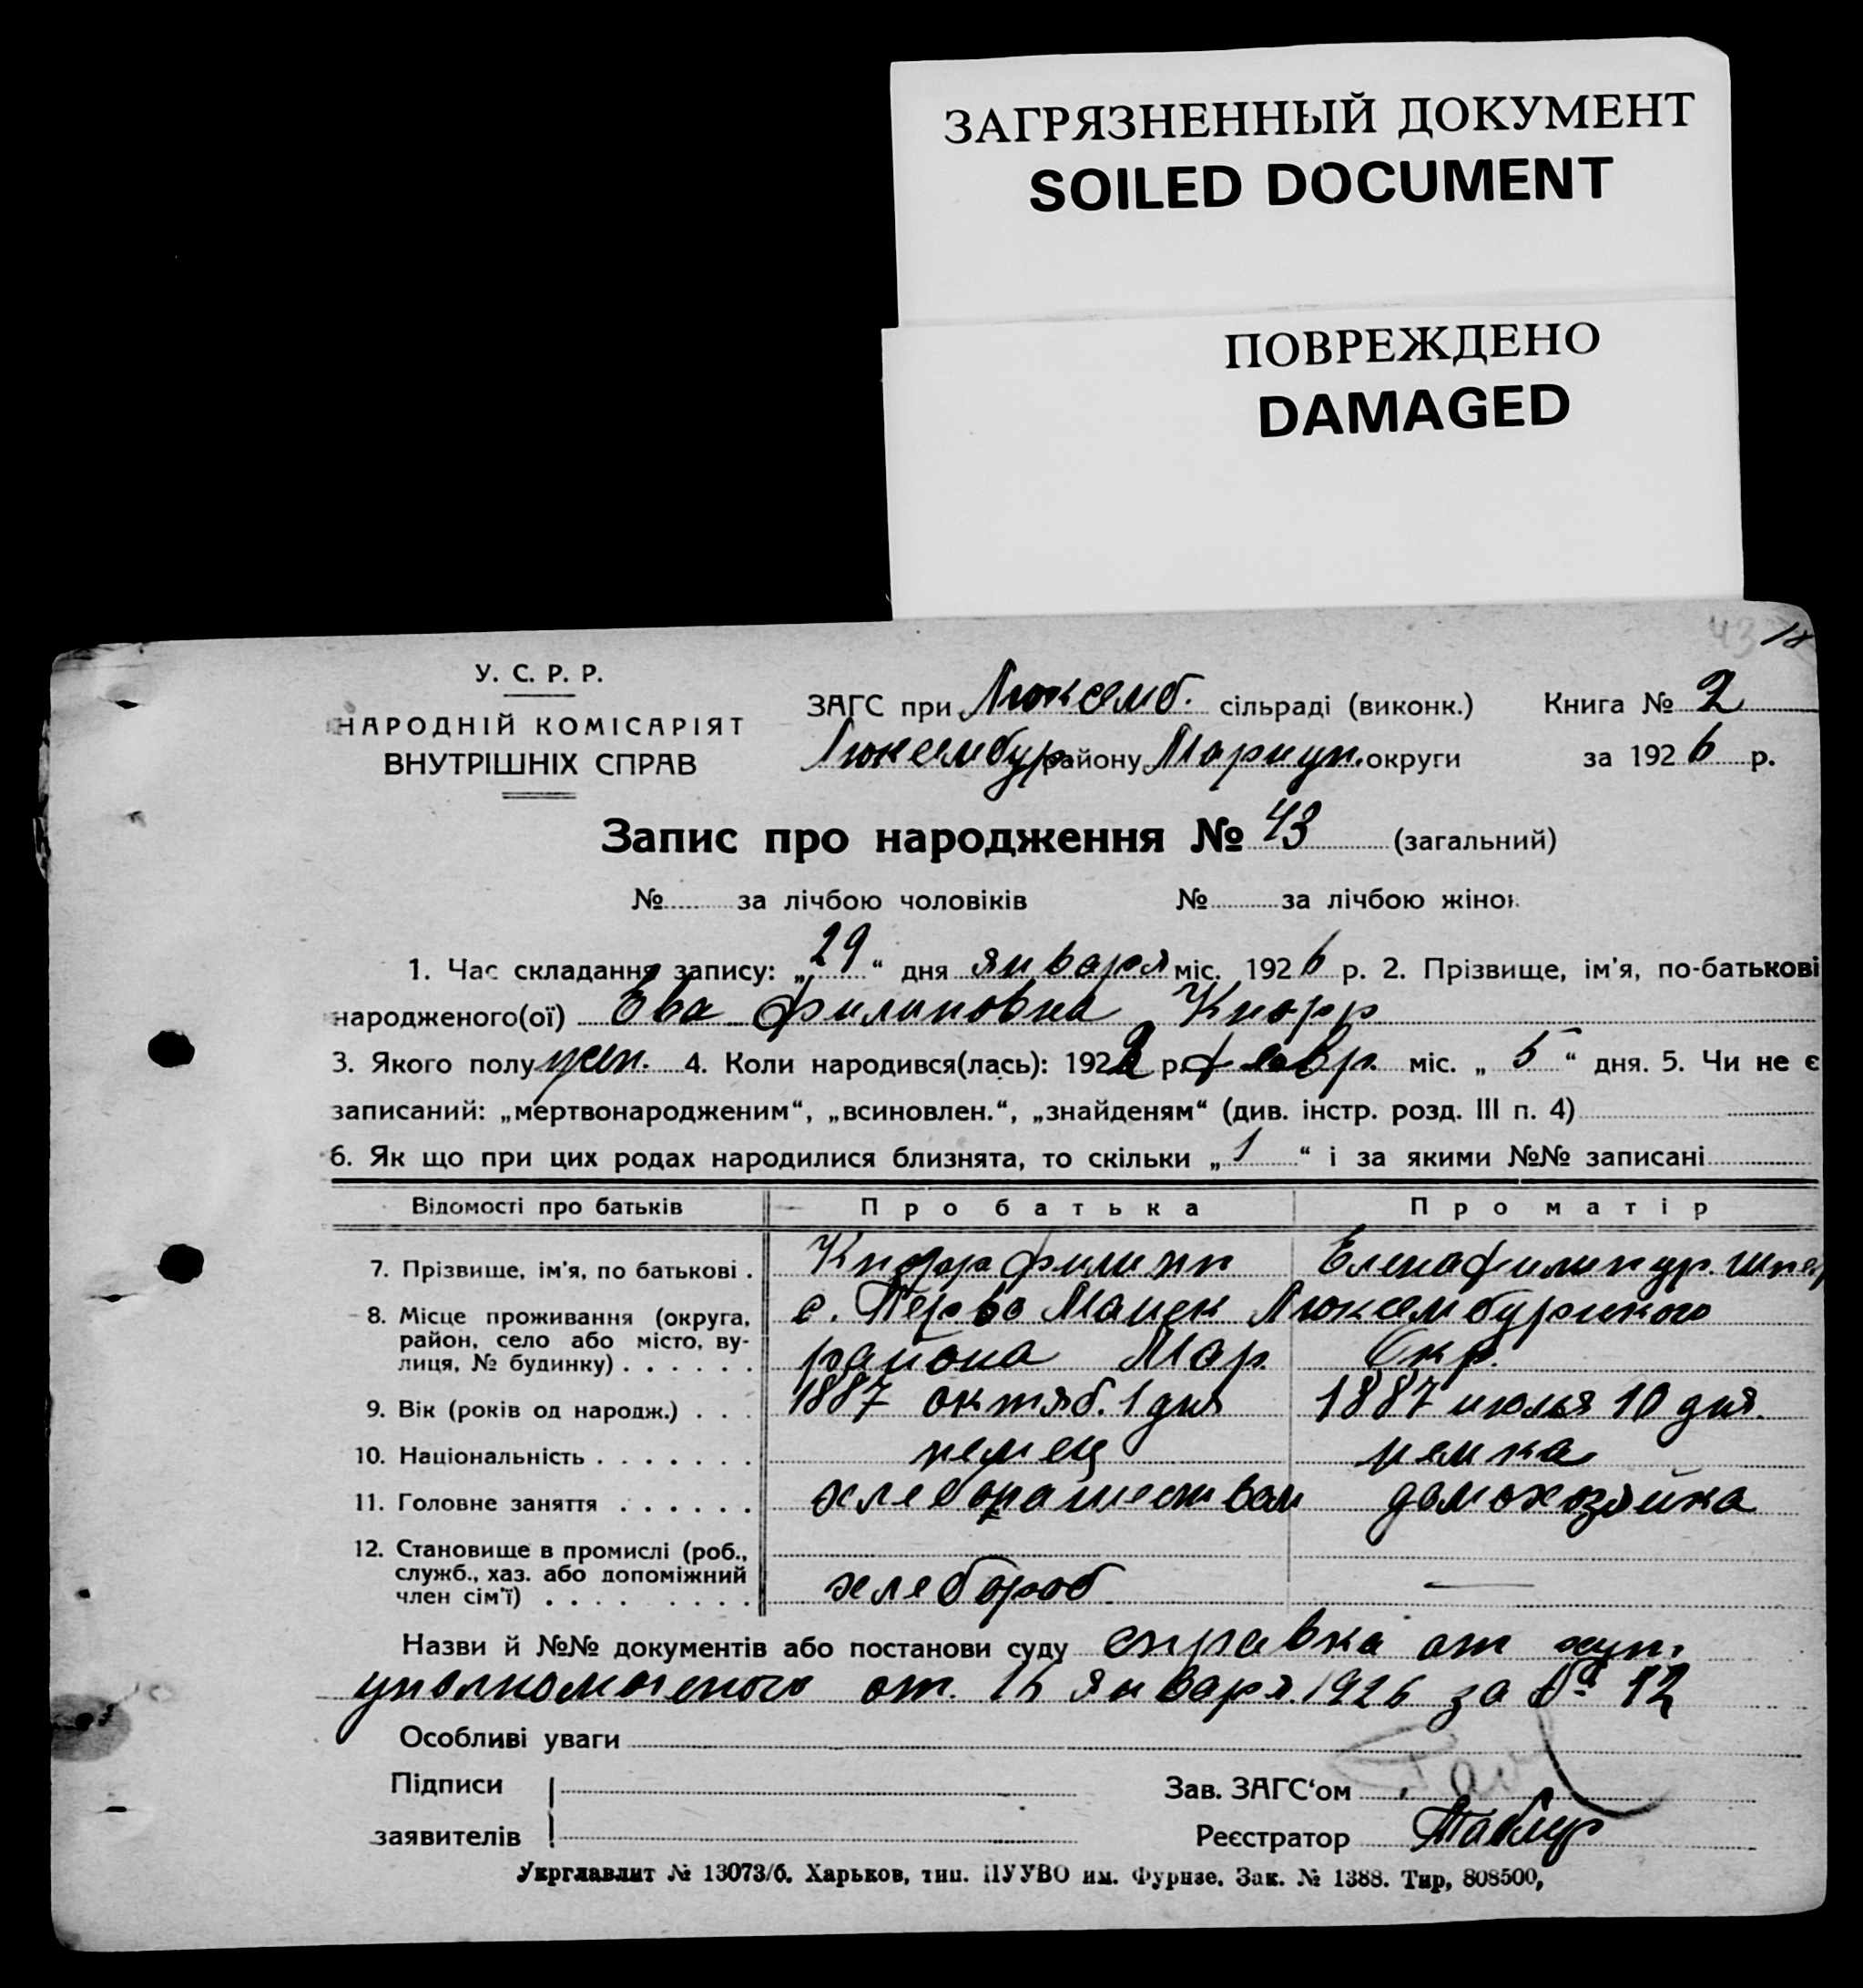 ЗАГРЯЗНЕННЫЙ ДОКУМЕНТ
SOILED DOCUMENT
ПОВРЕЖДЕНО
DAMAGED
43 18
У. С. Р. Р.
НАРОДНІЙ КОМІСАРІЯТ
ВНУТРІШНІХ СПРАВ
ЗАГС при Люксемб. сільраді (виконк.) Книга № 2
Люксембур району Мариуп. округи за 1926 р.
Запис про народження № 43 (загальний)
№ за лічбою чоловіків № за лічбою жінок
1. Час складання запису: „29“ дня января міс. 1926 р. 2. Прізвище, ім'я, по-батькові
народженого(ої) Ева Филиповна Кнорр
3. Якого полу жен. 4. Коли народився(лась): 1922 р. февр. міс. „5“ дня. 5. Чи не є
записаний: „мертвонародженим“, „всиновлен.“, „знайденям“ (див. інстр. розд. III п. 4)
6. Як що при цих родах народилися близнята, то скільки „1“ і за якими №№ записані
Відомості про батьків Про батька Про матір
7. Прізвище, ім'я, по батькові . Кнорр Филипп Елена Филип ур.
8. Місце проживання (округа, район, село або місто, вулиця, № будинку) . . . . . . с. Перво Люксембургского
района Мар. Окр.
9. Вік (років од народж.) . . . 1887 октяб. 1 дня 1887 июля 10 дня.
10. Національність . . . . . . . немец немка
11. Головне заняття . . . . . . хлебопашеством домохозяйка
12. Становище в промислі (роб., служб., хаз. або допоміжний член сім'ї) . . . . . . . . . хлебороб —
Назви й №№ документів або постанови суду справка от
уполномоченого от 15 января 1926 за № 12
Особливі уваги
Підписи Зав. ЗАГС'ом
заявителів Реєстратор
Укрглавлит № 13073/б. Харьков, тип. ПУУВО им. Фурнзе. Зак. № 1388. Тир, 808500,